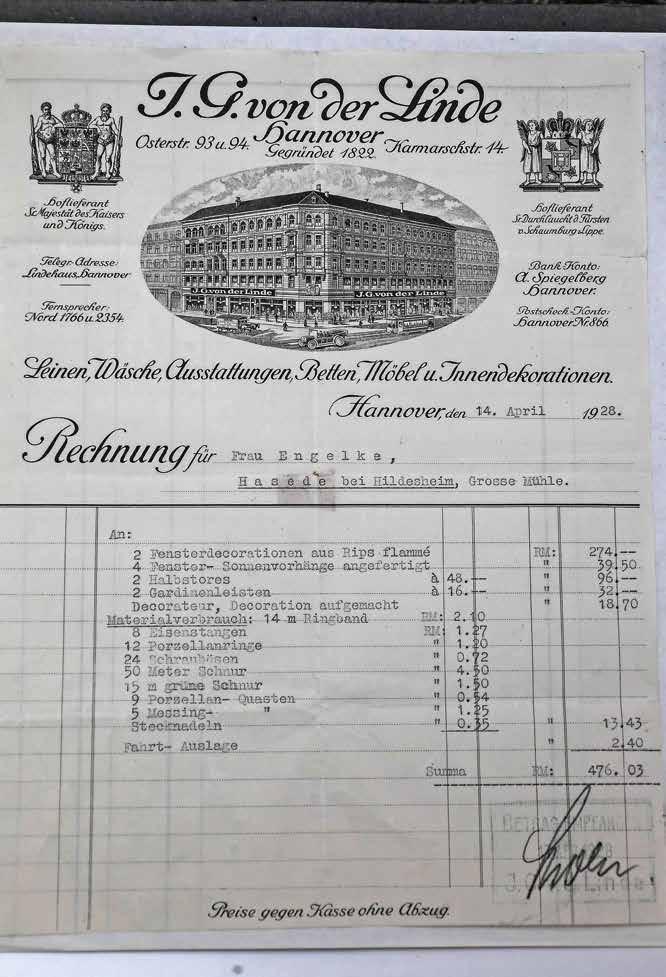 J. G. von der Linde
Hannover
Osterstr. 93 u. 94. Karmarschstr. 14
Gegründet 1822.
Hoflieferant
Sr. Majestät des Kaisers
und Königs.
Telegr.-Adresse:
Lindehaus, Hannover
Fernsprecher:
Nord 1766 u. 2354.
Hoflieferant
Sr. Durchlaucht d. Fürsten
v. Schaumburg-Lippe.
Bank-Konto:
A. Spiegelberg
Hannover.
Postscheck-Konto:
Hannover Nr. 866.
J.G.von der Linde J.G.von der Linde
Leinen, Wäsche, Ausstattungen, Betten, Möbel u. Innendekorationen.
Hannover, den 14. April 1928.
Rechnung für Frau Engelke,
Hasede bei Hildesheim, Grosse Mühle.
An:
2 Fensterdecorationen aus Rips flammé RM: 274.--
4 Fenster- Sonnenvorhänge angefertigt " 39.50
2 Halbstores à 48.-- " 96.--
2 Gardinenleisten à 16.-- " 32.--
Decorateur, Decoration aufgemacht " 18.70
Materialverbrauch: 14 m Ringband RM: 2.10
8 Eisenstangen RM: 1.27
12 Porzellanringe " 1.20
24 Schraubösen " 0.72
50 Meter Schnur " 4.50
15 m grüne Schnur " 1.50
9 Porzellan- Quasten " 0.54
5 Messing- " " 1.25
Stecknadeln " 0.35 " 13.43
Fahrt- Auslage " 2.40
Summa RM: 476.03
BETRAG EMPFANGEN
J. G. v. d. Linde
Preise gegen Kasse ohne Abzug.